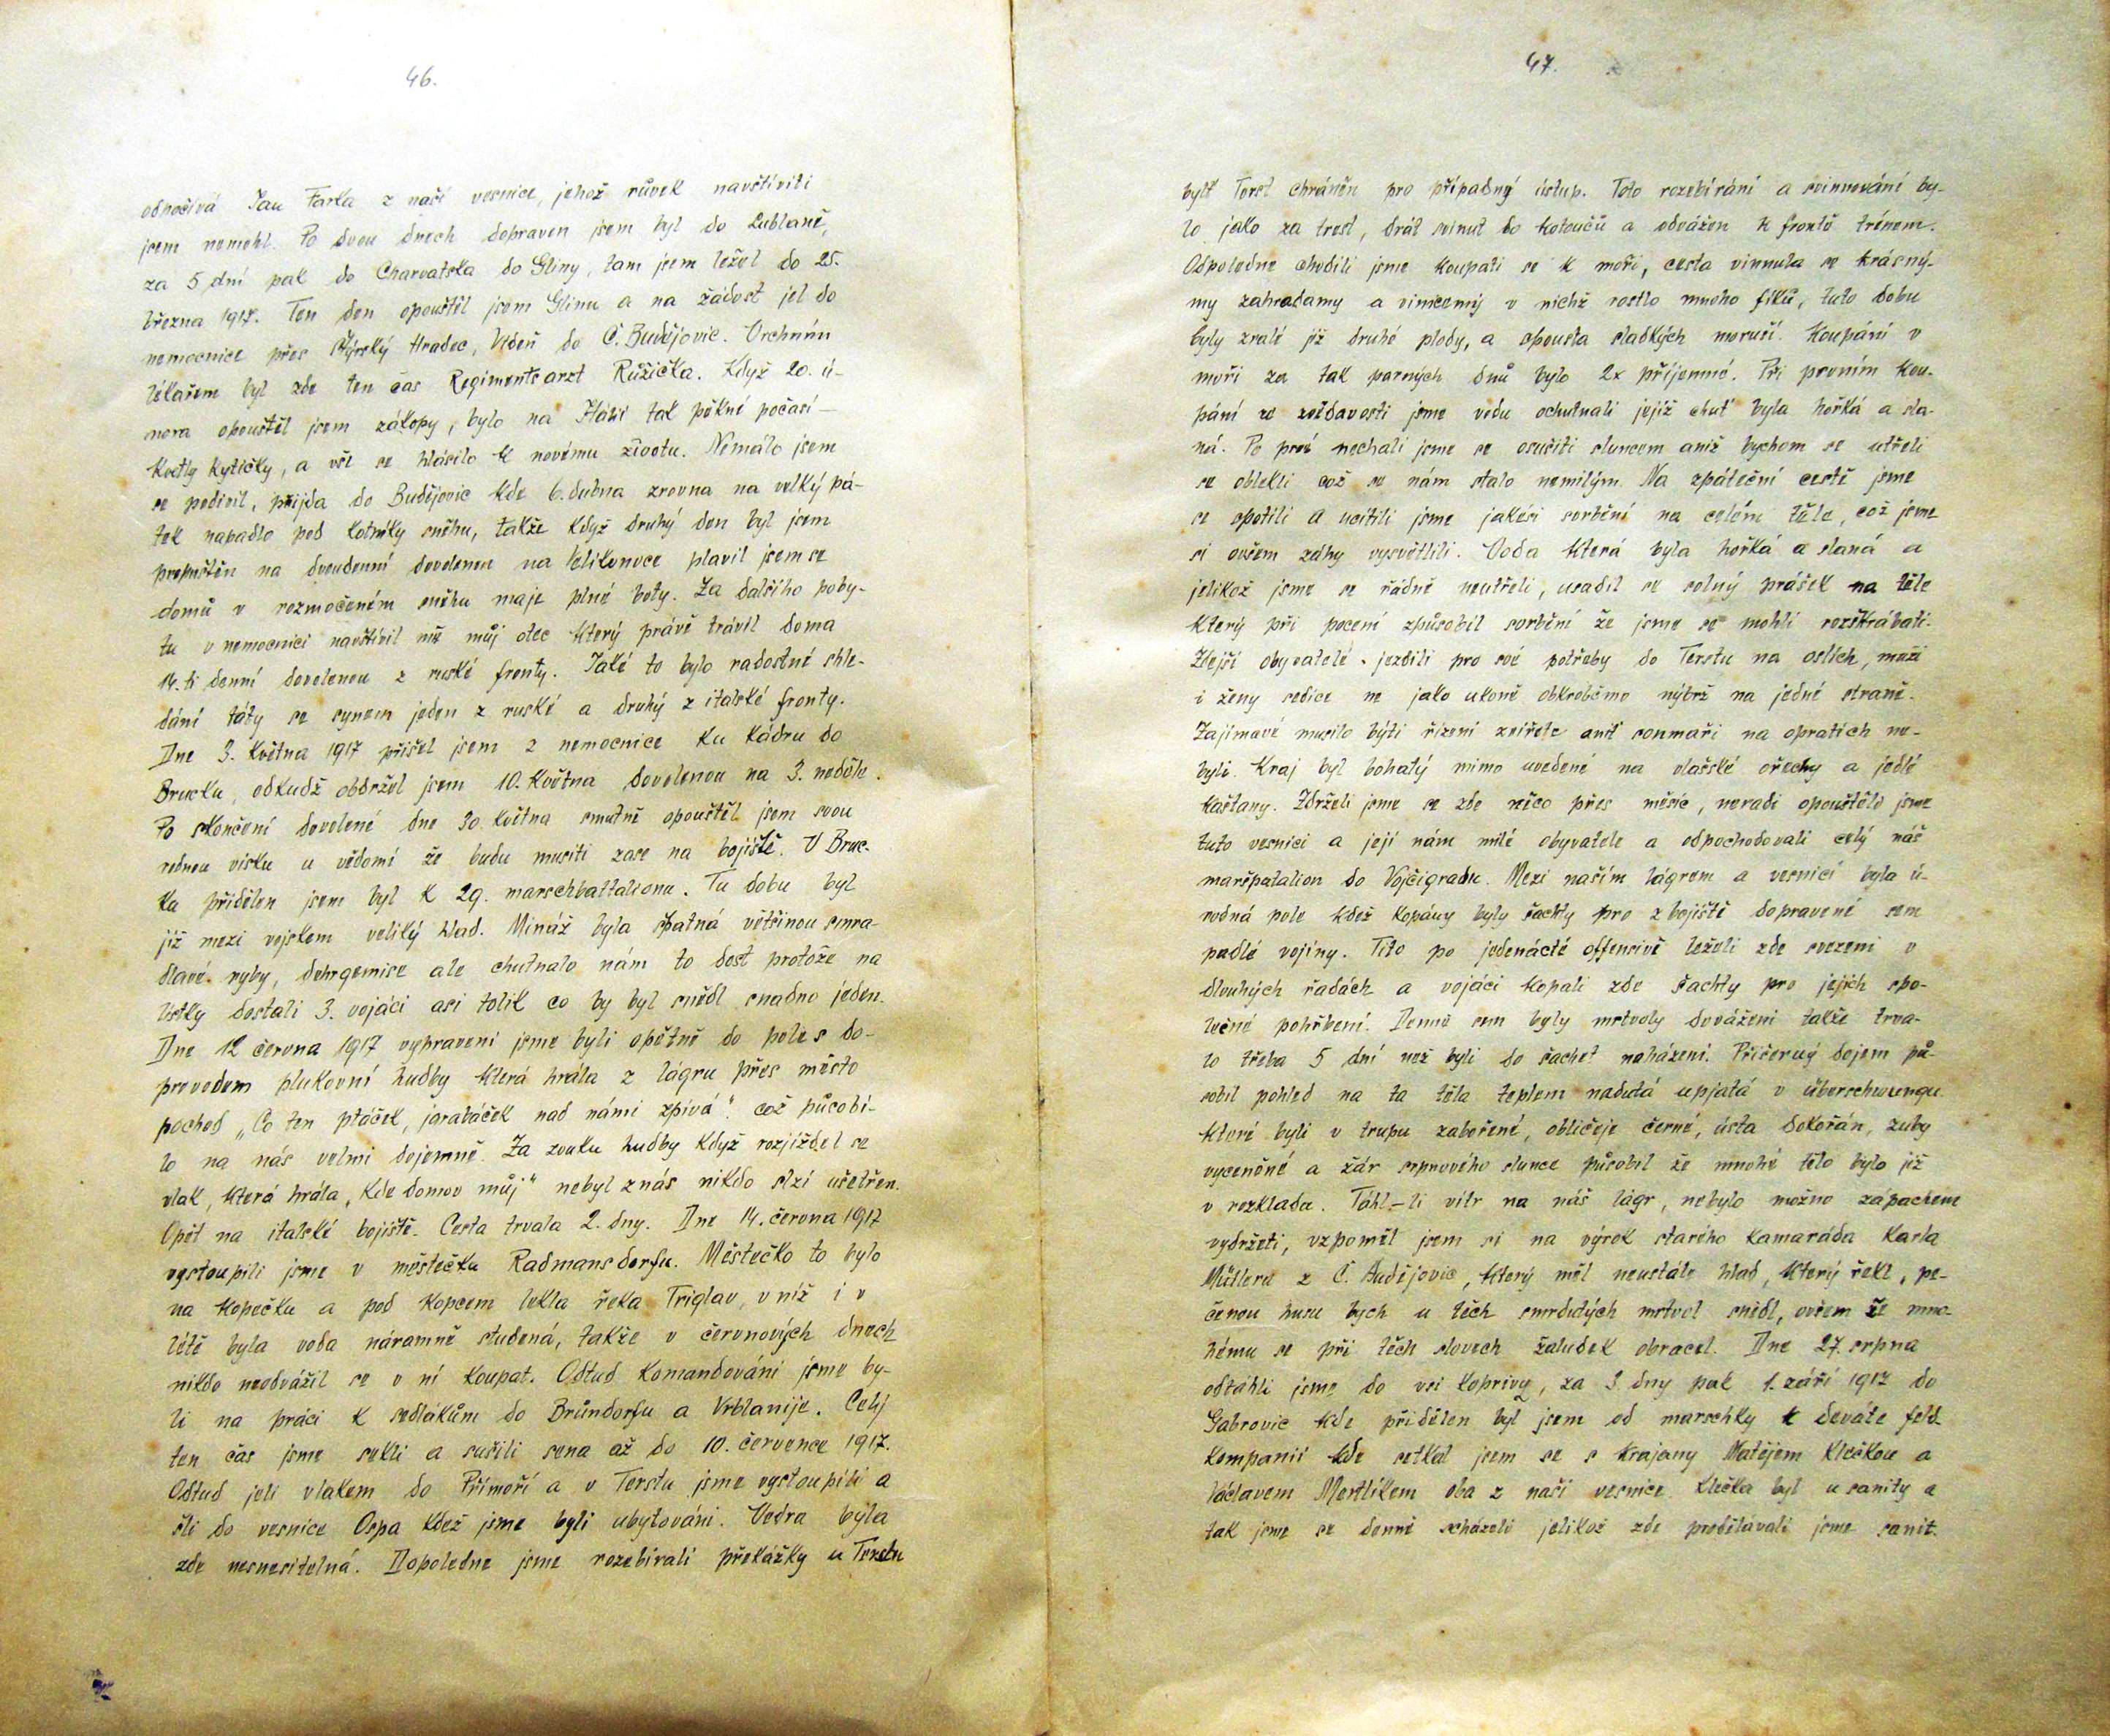 46.
odpočívá Jan Farka z naší vesnice, jehož růvek navštíviti
jsem nemohl. Po dvou dnech dopraven jsem byl do Lublaně,
za 5 dní pak do Charvatska do Gliny, tam jsem ležel do 25.
března 1917. Ten den opouštěl jsem Glinu a na žádost jel do
nemocnice přes Štýrský Hradec, Vídeň do Č. Budějovic. Vrchním
lékařem byl zde ten čas Regimentsarzt Růžička. Když 20. ú-
nora opouštěl jsem zákopy, bylo na Itálii tak pěkné počasí –
kvetly kytičky, a vše se hlásilo k novému životu. Nemálo jsem
se podivil, přijda do Budějovic kde 6. dubna zrovna na velký pá-
tek napadlo pod kotníky sněhu, takže když druhý den byl jsem
propuštěn na dvoudenní dovolenou na Velikonoce plavil jsem se
domů v rozmočeném sněhu maje plné boty. Za dalšího poby-
tu v nemocnici navštívil mě můj otec který právě trávil doma
14.ti denní dovolenou z ruské fronty. Jaké to bylo radostné shle-
dání táty se synem jeden z ruské a druhý z italské fronty.
Dne 3. května 1917 přišel jsem z nemocnice ku kádru do
Brucku, odkudž obdržel jsem 10. května dovolenou na 3. neděle.
Po skončení dovolené dne 30. května smutně opouštěl jsem svou
rodnou vísku u vědomí že budu musiti zase na bojiště. V Bruc-
ku přidělen jsem byl k 29. marschbattalionu. Tu dobu byl
již mezi vojskem veliký hlad. Mináž byla špatná většinou smra-
dlavé ryby, dohrgemise ale chutnalo nám to dost protože na
lístky dostali 3. vojáci asi tolik co by byl snědl snadno jeden.
Dne 12 června 1917 vypraveni jsme byli opětně do pole s do-
provodem plukovní hudby která hrála z lágru přes město
pochod „Co ten ptáček, jarabáček nad námi zpívá". což působi-
lo na nás velmi dojemně. Za zvuku hudby když rozjížděl se
vlak, která hrála „Kde domov můj" nebyl z nás nikdo slzí ušetřen.
Opět na italské bojiště. Cesta trvala 2. dny. Dne 14. června 1917
vystoupili jsme v městečku Radmansdorfu. Městečko to bylo
na kopečku a pod kopcem tekla řeka Triglav, v níž i v
létě byla voda náramně studená, takže v červnových dnech
nikdo neodvážil se v ní koupat. Odtud komandováni jsme by-
li na práci k sedlákům do Brůndorfu a Vrblanije. Celý
ten čas jsme sekli a sušili sena až do 10. července 1917.
Odtud jeli vlakem do Přímoří a v Terstu jsme vystoupili a
šli do vesnice Ospa kdež jsme byli ubytováni. Vedra byla
zde nesnesitelná. Dopoledne jsme rozebírali překážky u Terstu
47.
byl Terst chráněn pro případný ústup. Toto rozebírání a svinnování by-
lo jako za trest, drát svinut do kotoučů a odvážen k frontě trénem.
Odpoledne chodili jsme koupati se k moři, cesta vinnula se krásný-
my zahradamy a vinicemy v nichž rostlo mnoho fíků, tuto dobu
byly zralé již druhé plody, a spousta sladkých moruší. Koupání v
moři za tak parných dnů bylo 2x příjemné. Při prvním kou-
pání ze zvědavosti jsme vodu ochutnali jejíž chuť byla hořká a sla-
ná. Po prvé nechali jsme se osušiti sluncem aniž bychom se utřeli
se oblekli což se nám stalo nemilým. Na zpáteční cestě jsme
se spotili a ucítili jsme jakési svrbění na celém těle, což jsme
si ovšem záhy vysvětlili. Voda která byla hořká a slaná a
jelikož jsme se řádně neutřeli, usadil se solný prášek na těle
který při pocení způsobil svrbění že jsme se mohli rozškrábati.
Zdejší obyvatelé jezdili pro své potřeby do Terstu na oslích, muži
i ženy sedíce ne jako ukoně obkročmo nýbrž na jedné straně.
Zajímavé musilo býti řízení zvířete anť soumaři na opratích ne-
byli. Kraj byl bohatý mimo uvedené na vlašské ořechy a jedlé
kaštany. Zdrželi jsme se zde něco přes měsíc, neradi opouštěli jsme
tuto vesnici a její nám milé obyvatele a odpochodovali celý náš
maršpatalion do Vojčigradu. Mezi naším lágrem a vesnicí byla ú-
rodná pole kdež kopány byly šachty pro z bojiště dopravené sem
padlé vojíny. Tito po jedenácté offensivě leželi zde svezeni v
dlouhých řadách a vojáci kopali zde šachty pro jejich spo-
lečné pohřbení. Denně sem byly mrtvoly dováženi takže trva-
lo třeba 5 dní než byli do šachet naházeni. Příšerný dojem pů-
sobil pohled na ta těla teplem nadutá upjatá v überschwungu
které byli v trupu zabořené, obličeje černé, ústa dokořán, zuby
vyceněné a žár srpnového slunce působil že mnohé tělo bylo již
v rozkladu. Táhl-li vítr na náš lágr, nebylo možno zápachem
vydržeti, vzpoměl jsem si na výrok starého kamaráda Karla
Müllera z Č. Budějovic, který měl neustále hlad, který řekl, pe-
čenou husu bych u těch smrdutých mrtvol snědl, ovšem že mno-
hému se při těch slovech žaludek obracel. Dne 27. srpna
odtáhli jsme do vsi Koprivy, za 3. dny pak 1. září 1917 do
Gabrovic kde přidělen byl jsem od marschky k deváté feld
kompanii kde setkal jsem se s krajany Matějem Klečkou a
Václavem Mertlíkem oba z naší vesnice. Klečka byl u sanity a
tak jsme se denně scházeli jelikož zde prodělávali jsme sanit.